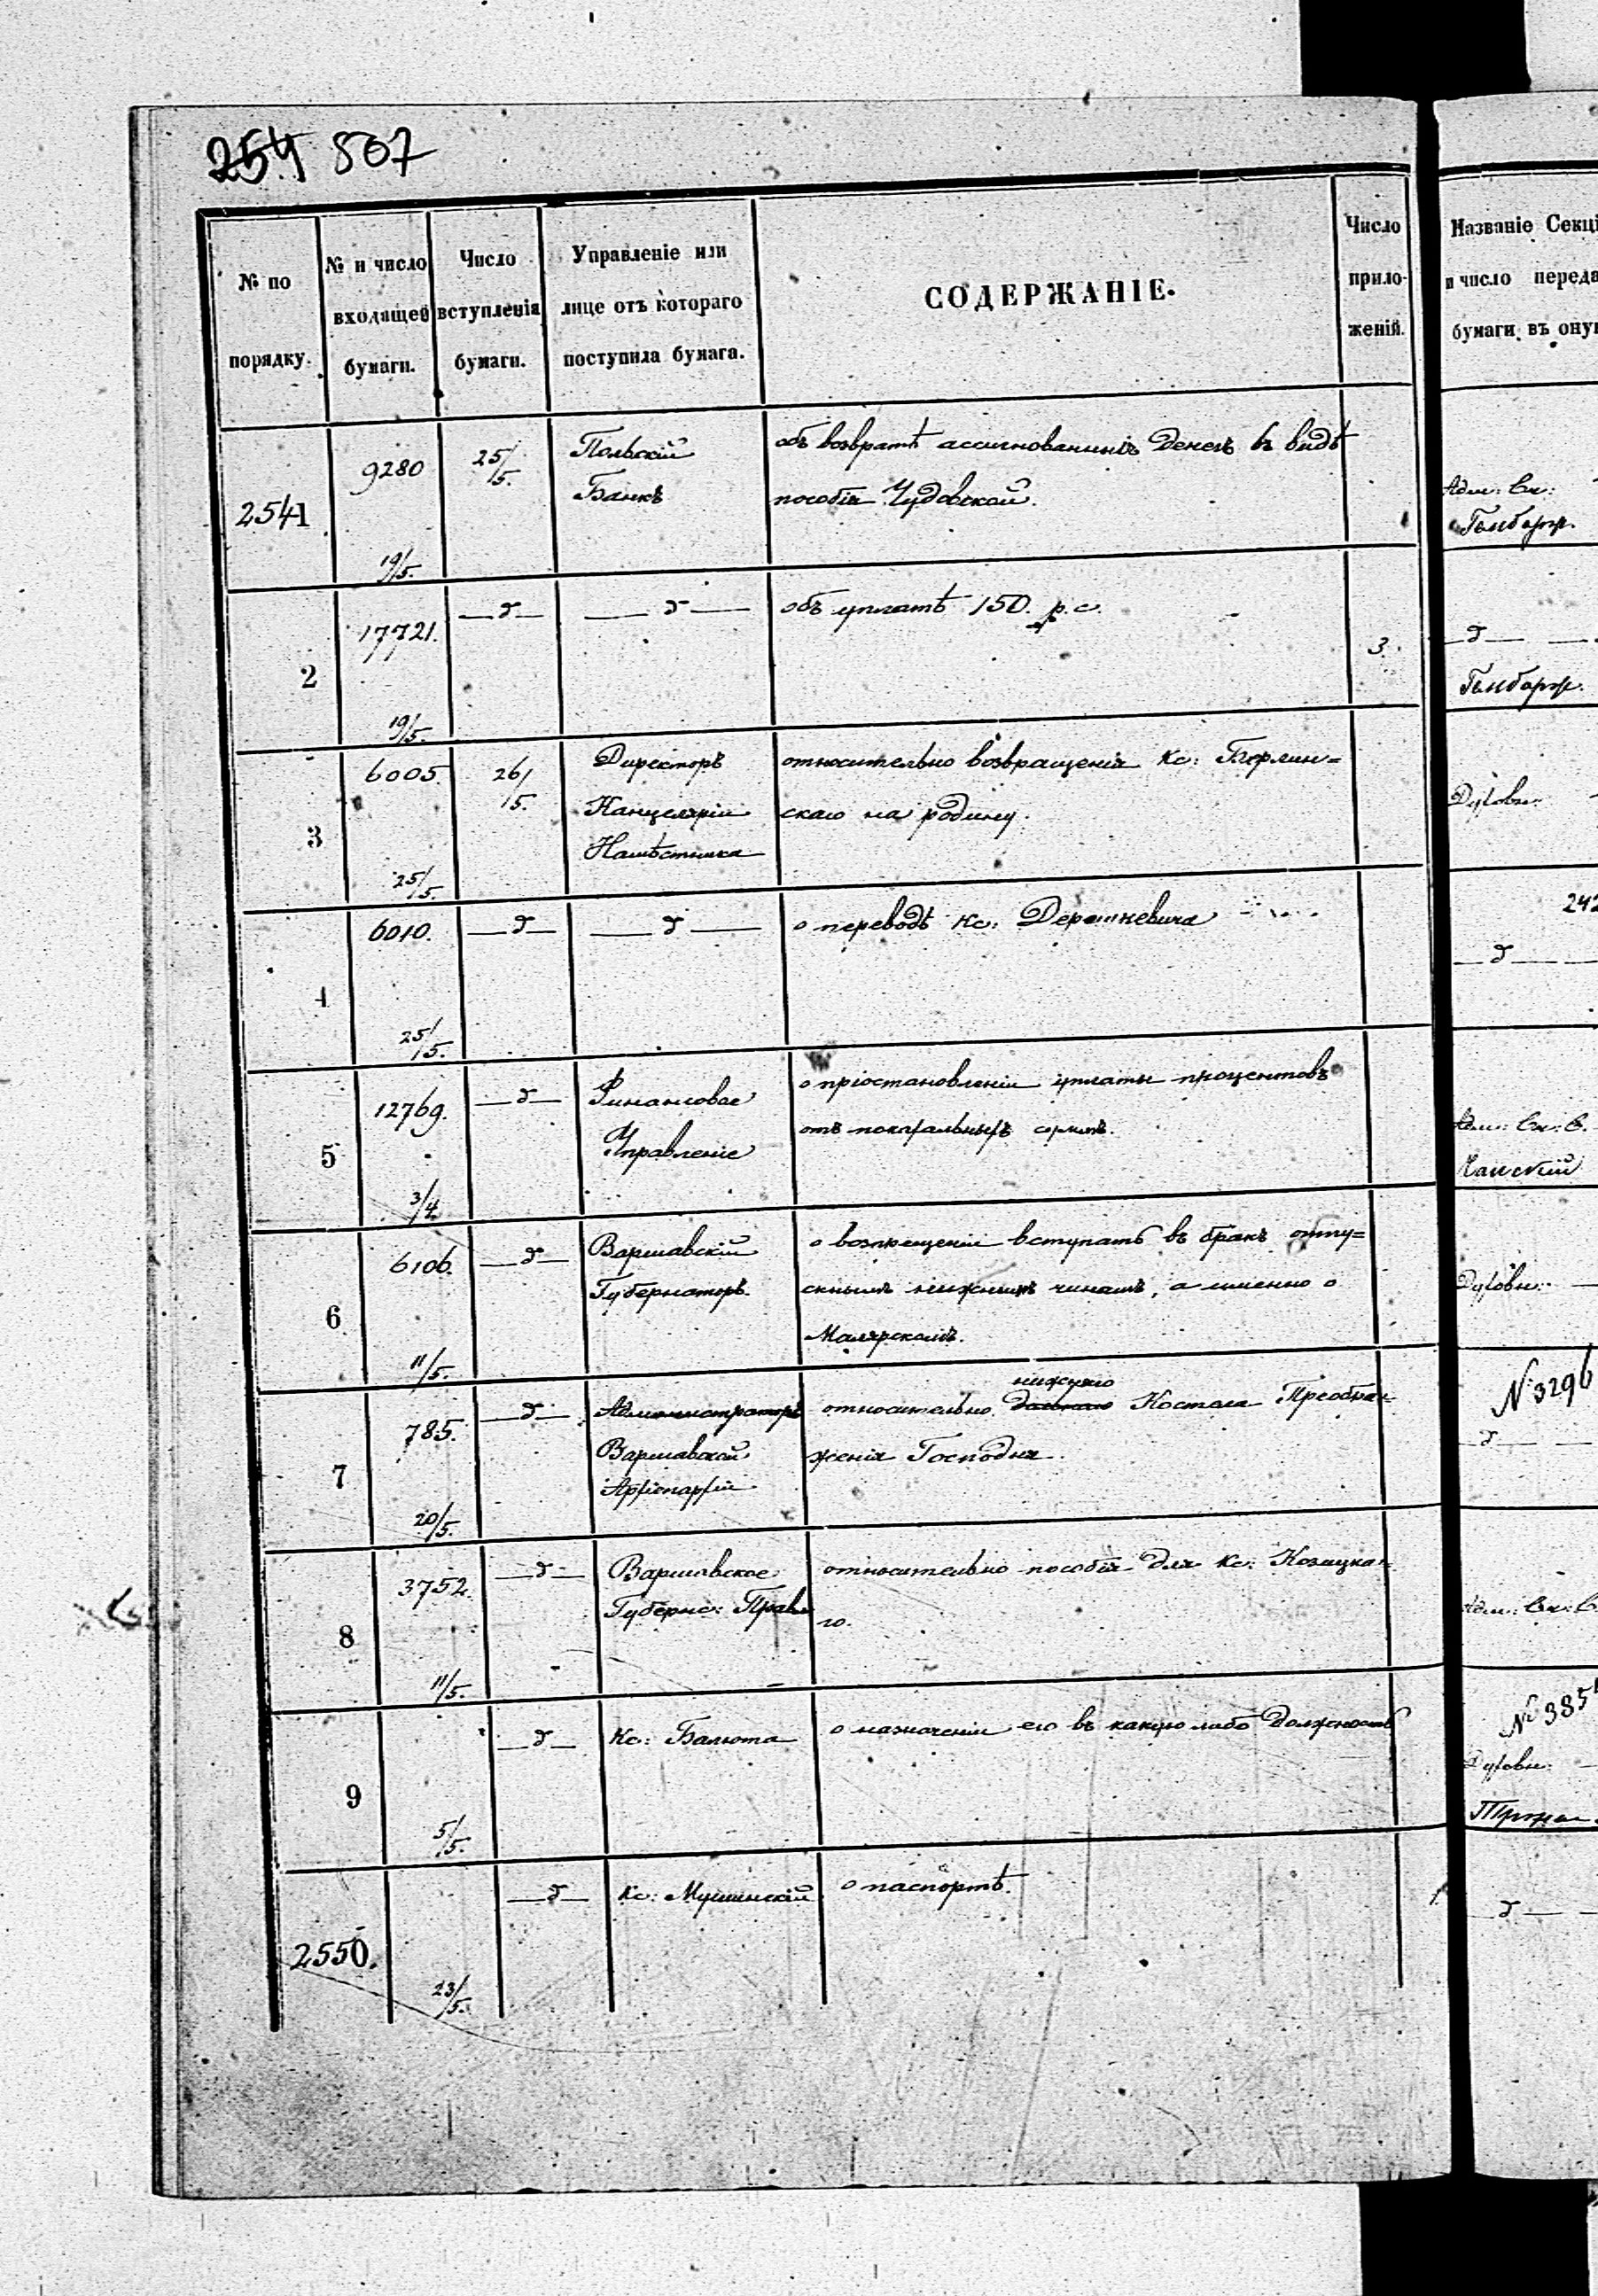 254 507
№ по порядку.
№ и число входящей бумаги.
Число вступленія бумаги.
Управленіе или лице отъ котораго поступила бумага.
СОДЕРЖАНІЕ.
Число приложеній.
Названіе Секці
и число переда
бумаги въ ону
2541
9280
19/5.
25/5.
Польскій
Банкъ
объ возвратѣ ассигнованныхъ денегъ въ видѣ
пособія Чудовской.
Адм: Ск:
2
17721.
19/5.
—д—
—д—
объ уплатѣ 150. р. с.
3.
—д—
3
6005.
25/5.
26/5.
Директоръ
Канцеляріи
Намѣстника
относительно возвращенія Кс: Берлин=
скаго на родину.
Духовн:
4
6010.
25/5.
—д—
—д—
о переводѣ Кс:
242
—д—
5
12769.
3/4.
—д—
Финансовое
Управленіе
о пріостановленіи уплаты процентовъ
отъ суммъ.
Адм: Ск: С.
6
6106.
11/5.
—д—
Варшавскій
Губернаторъ.
о возпрещеніи вступать въ бракъ отпу=
скнымъ нижнимъ чинамъ, а именно о
Малярскомъ.
Духовн:
7
785.
20/5.
—д—
Администраторъ
Варшавской
Архіепархіи
нижняго
относительно Костела Преобра=
женія Господня.
№ 3296
—д—
8
3752.
11/5.
—д—
Варшавское
Губернс: Правл
относительно пособія для Кс: Козицка=
го.
Адм: Ск: С.
9
5/5.
—д—
Кс: Балюта
о назначеніи его въ какую либо должность
№ 385
Духовн:
2550.
23/5.
—д—
Кс: Мушинскій
о паспортѣ.
1
—д—